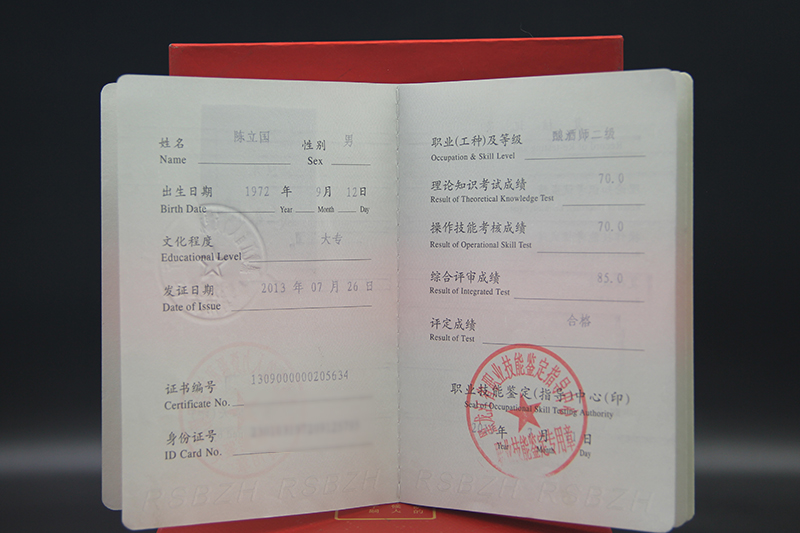 姓名 陈立国 性别 男
Name Sex
出生日期 1972 年 9月 12日
Birth Date Year Month Day
文化程度 大专
Educational Level
发证日期 2013 年 07 月 26 日
Date of Issue
证书编号 1309000000205634
Certificate No.
身份证号
ID Card No.
职业(工种)及等级 酿酒师二级
Occupation & Skill Level
理论知识考试成绩 70.0
Result of Theoretical Knowledge Test
操作技能考核成绩 70.0
Result of Operational Skill Test
综合评审成绩 85.0
Result of Integrated Test
评定成绩 合格
Result of Test
职业技能鉴定指导中心
职业技能鉴定(指导)中心(印)
Seal of Occupational Skill Testing Authority
年 月 日
Year Month Day
职业技能鉴定专用章
RSBZH RSBZH RSBZH